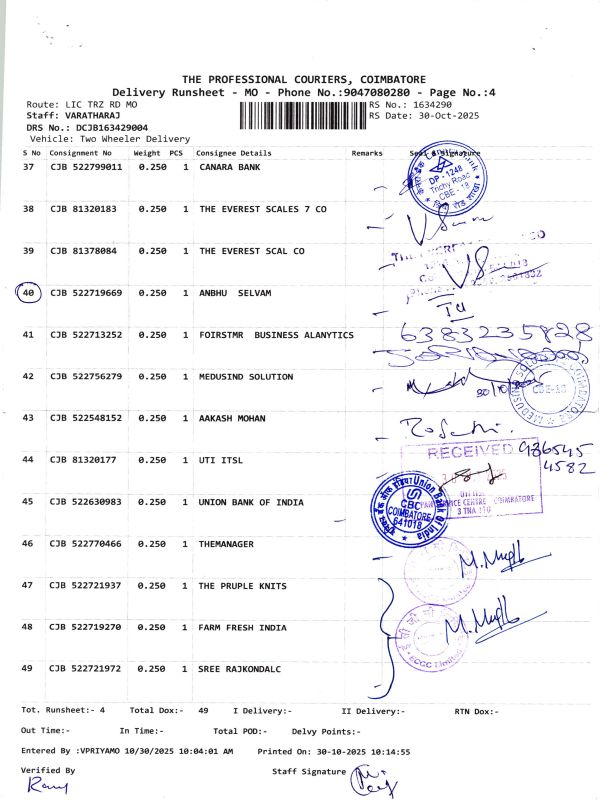 THE PROFESSIONAL COURIERS, COIMBATORE
Delivery Runsheet - MO - Phone No.:9047080280 - Page No.:4
Route: LIC TRZ RD MO RS No.: 1634290
Staff: VARATHARAJ RS Date: 30-Oct-2025
DRS No.: DCJB163429004
Vehicle: Two Wheeler Delivery
S No Consignment No Weight PCS Consignee Details Remarks
37 CJB 522799011 0.250 1 CANARA BANK
DP - 1248
Trichy Road
CBE - 18
38 CJB 81320183 0.250 1 THE EVEREST SCALES 7 CO
39 CJB 81378084 0.250 1 THE EVEREST SCAL CO
40 CJB 522719669 0.250 1 ANBHU SELVAM
41 CJB 522713252 0.250 1 FOIRSTMR BUSINESS ALANYTICS 6383235828
42 CJB 522756279 0.250 1 MEDUSIND SOLUTION
CBE-18
43 CJB 522548152 0.250 1 AAKASH MOHAN
44 CJB 81320177 0.250 1 UTI ITSL
RECEIVED 936545
4582
COIMBATORE
45 CJB 522630983 0.250 1 UNION BANK OF INDIA
Union Bank of India
CBC
COIMBATORE
641018
46 CJB 522770466 0.250 1 THEMANAGER
47 CJB 522721937 0.250 1 THE PRUPLE KNITS
48 CJB 522719270 0.250 1 FARM FRESH INDIA
ECGC Limited
49 CJB 522721972 0.250 1 SREE RAJKONDALC
Tot. Runsheet:- 4 Total Dox:- 49 I Delivery:- II Delivery:- RTN Dox:-
Out Time:- In Time:- Total POD:- Delvy Points:-
Entered By :VPRIYAMO 10/30/2025 10:04:01 AM Printed On: 30-10-2025 10:14:55
Verified By Staff Signature